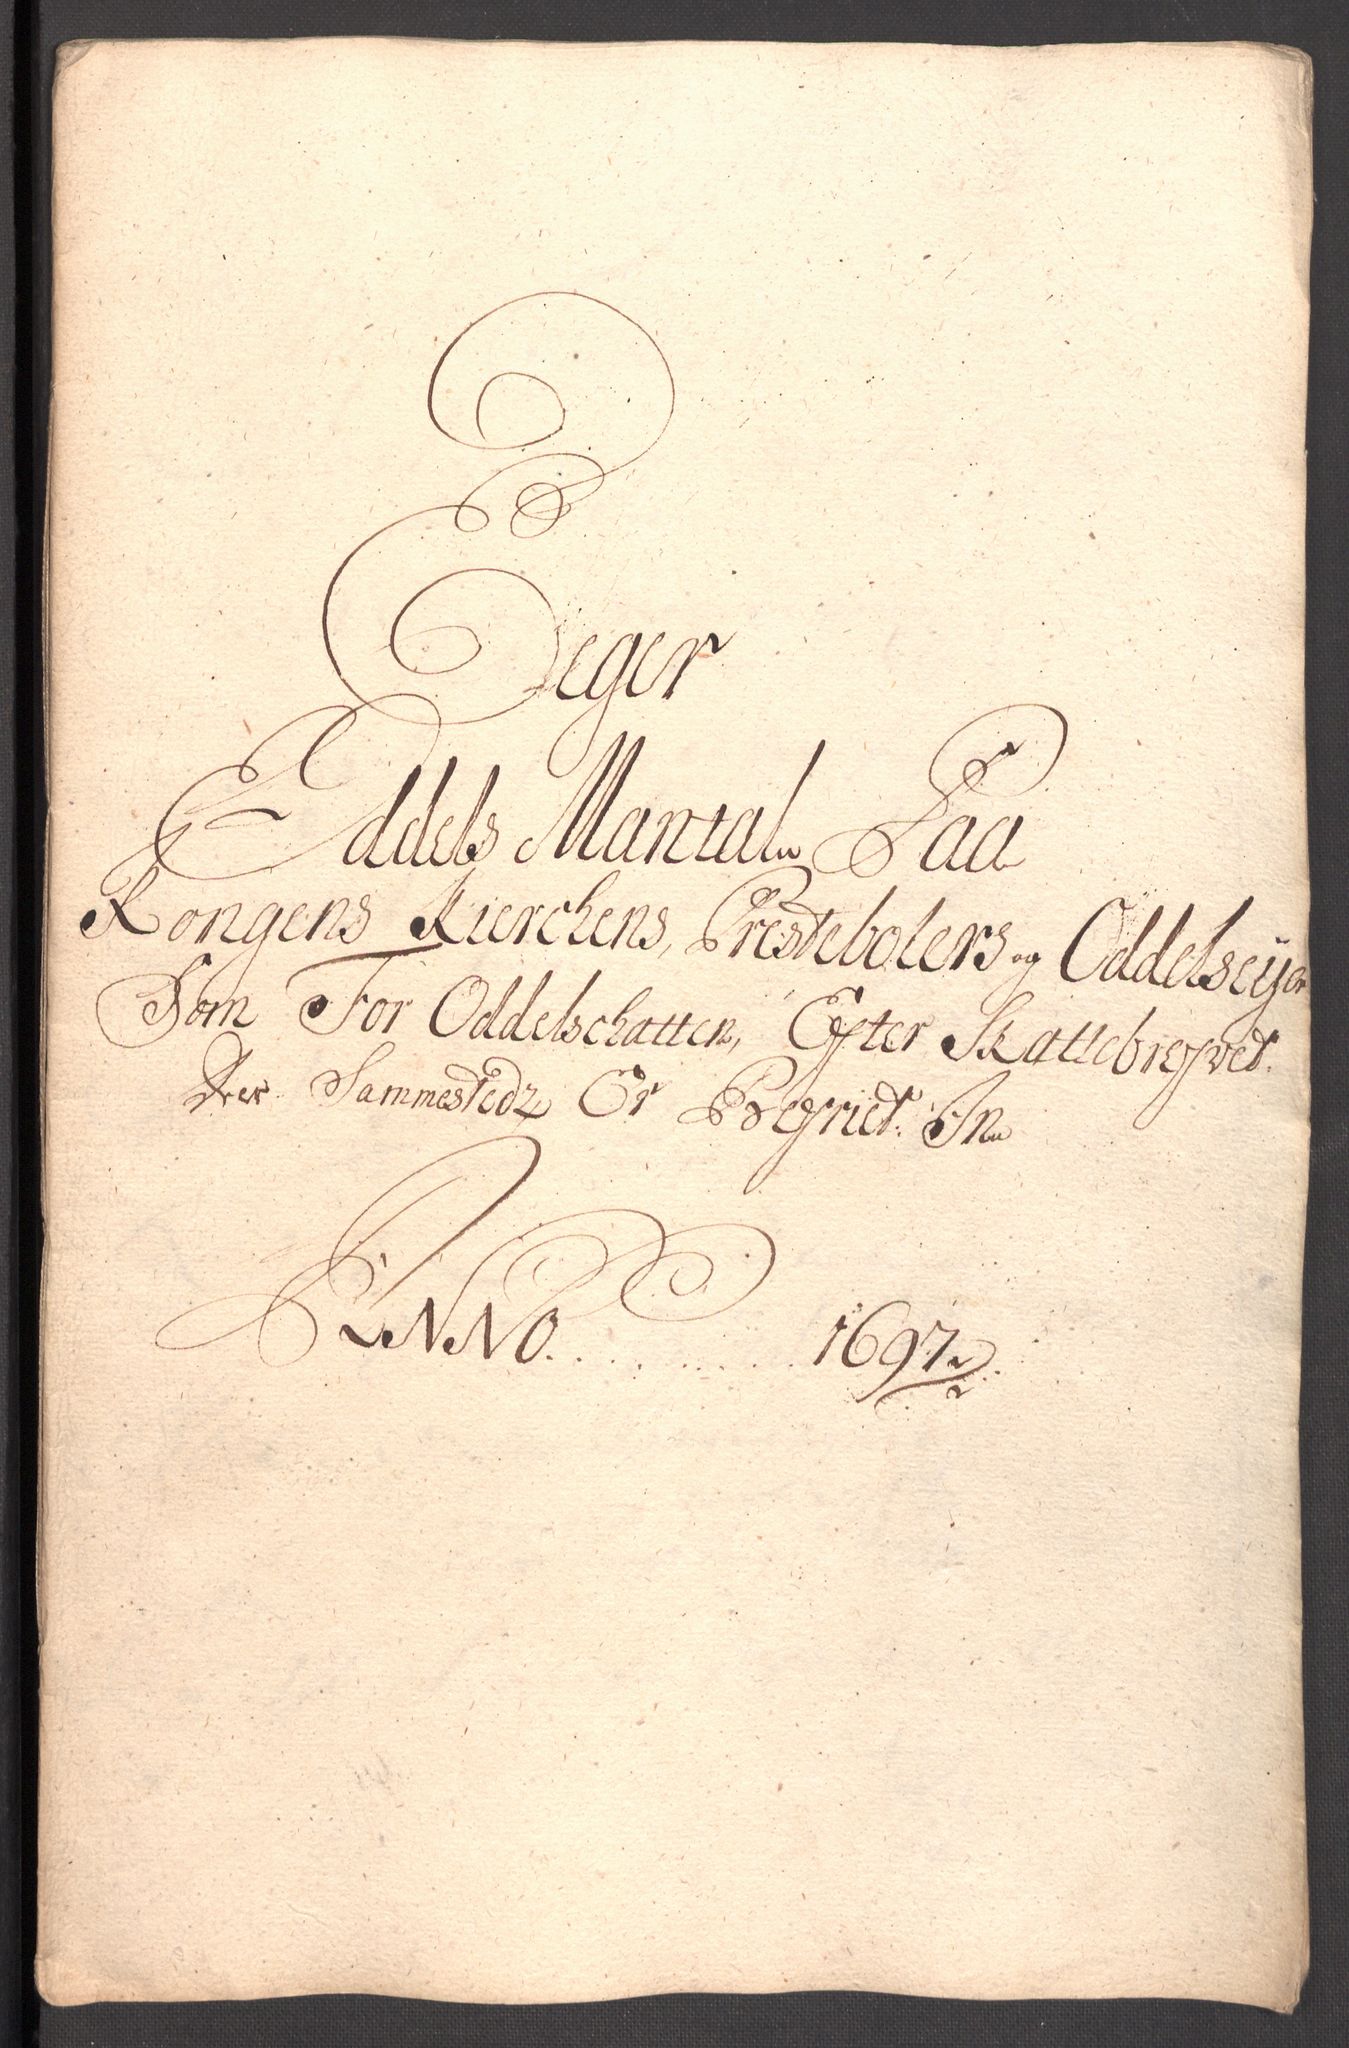 Eeger
Eddels Mantal Paa
Kongens Kierchens, Prestebolers og Oddelseyer
Som For Oddelschatten, Efter Skattebreyvet.
Der Sammestedz Er Befriet. In
ANNO......... 1697